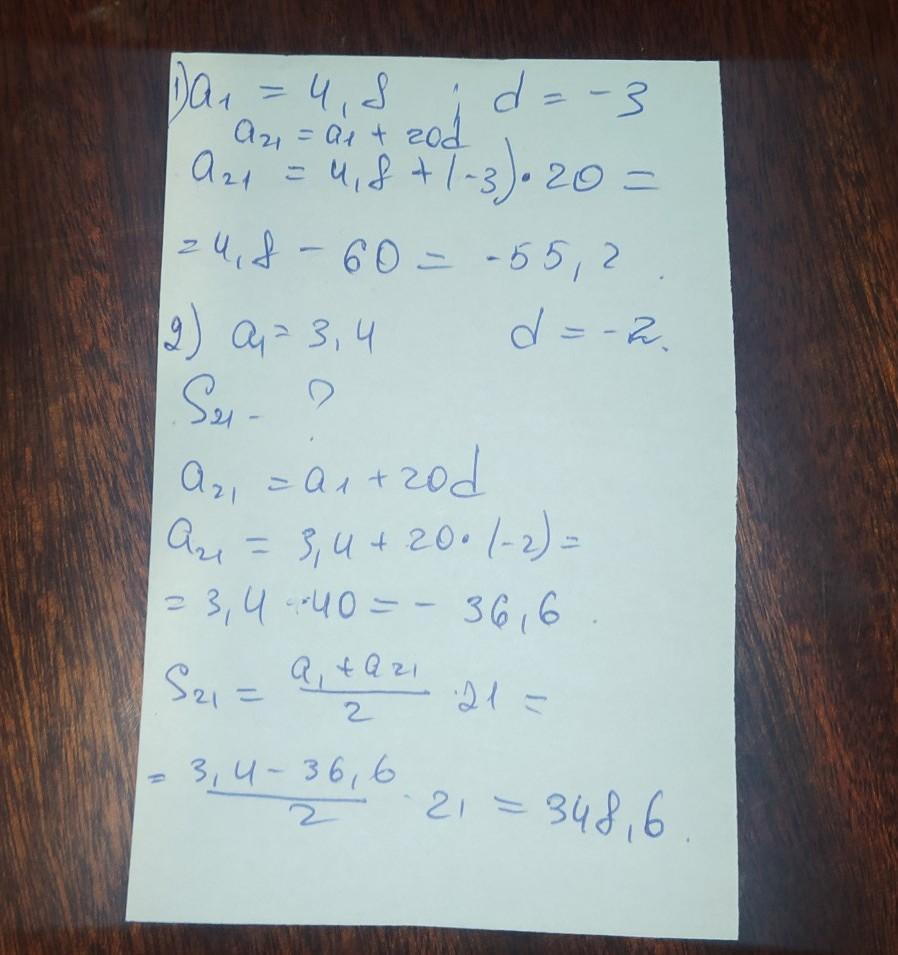 1) a₁ = 4,8 ; d = -3
a₂₁ = a₁ + 20d
a₂₁ = 4,8 + (-3) · 20 =
= 4,8 - 60 = -55,2 .
2) a₁ = 3,4 d = -2.
S₂₁ - ?
a₂₁ = a₁ + 20d
a₂₁ = 3,4 + 20 · (-2) =
= 3,4 - 40 = - 36,6 .
S₂₁ = (a₁ + a₂₁)/2 · 21 =
= (3,4 - 36,6)/2 · 21 = 348,6 .